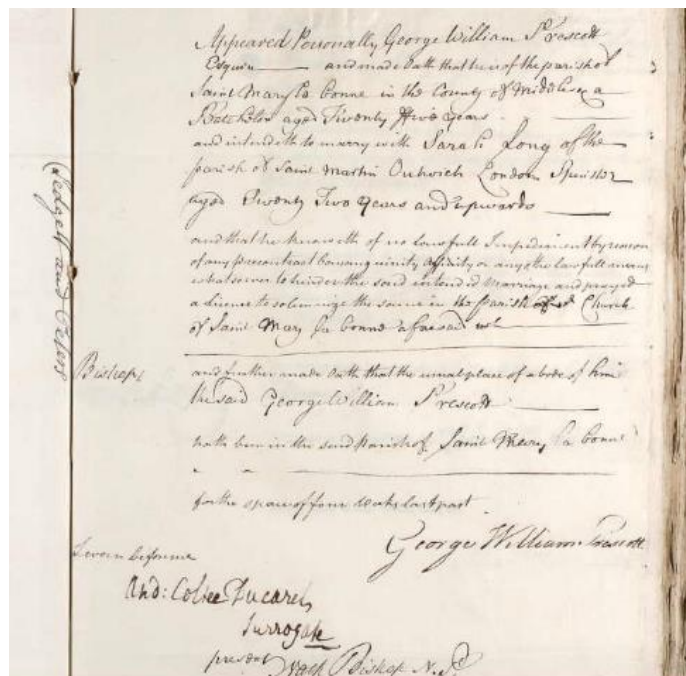 Appeared Personally George William Prescott
Esquire and made Oath that he is of the parish of
Saint Mary La bonne in the County of Middlesex a
Batchelor aged Twenty Five Years
and intendeth to marry with Sarah Long of the
parish of Saint Martin Outwich London Spinster
aged Twenty Two Years and upwards
and that he knoweth of no lawfull Impediment by reason
of any precontract Consanguinity Affinity or any other lawfull means
whatsoever to hinder the said intended Marriage and prayed
a Licence to solemnize the same in the parish Church
of Saint Mary La bonne aforesaid
Bishop
and further made Oath that the usual place of abode of him
the said George William Prescott
hath been in the said Parish of Saint Mary La bonne
for the space of four Weeks last past
George William Prescott
Sworn before me
And: Coltee Ducarel
Surrogate
present Nath Bishop N. P.